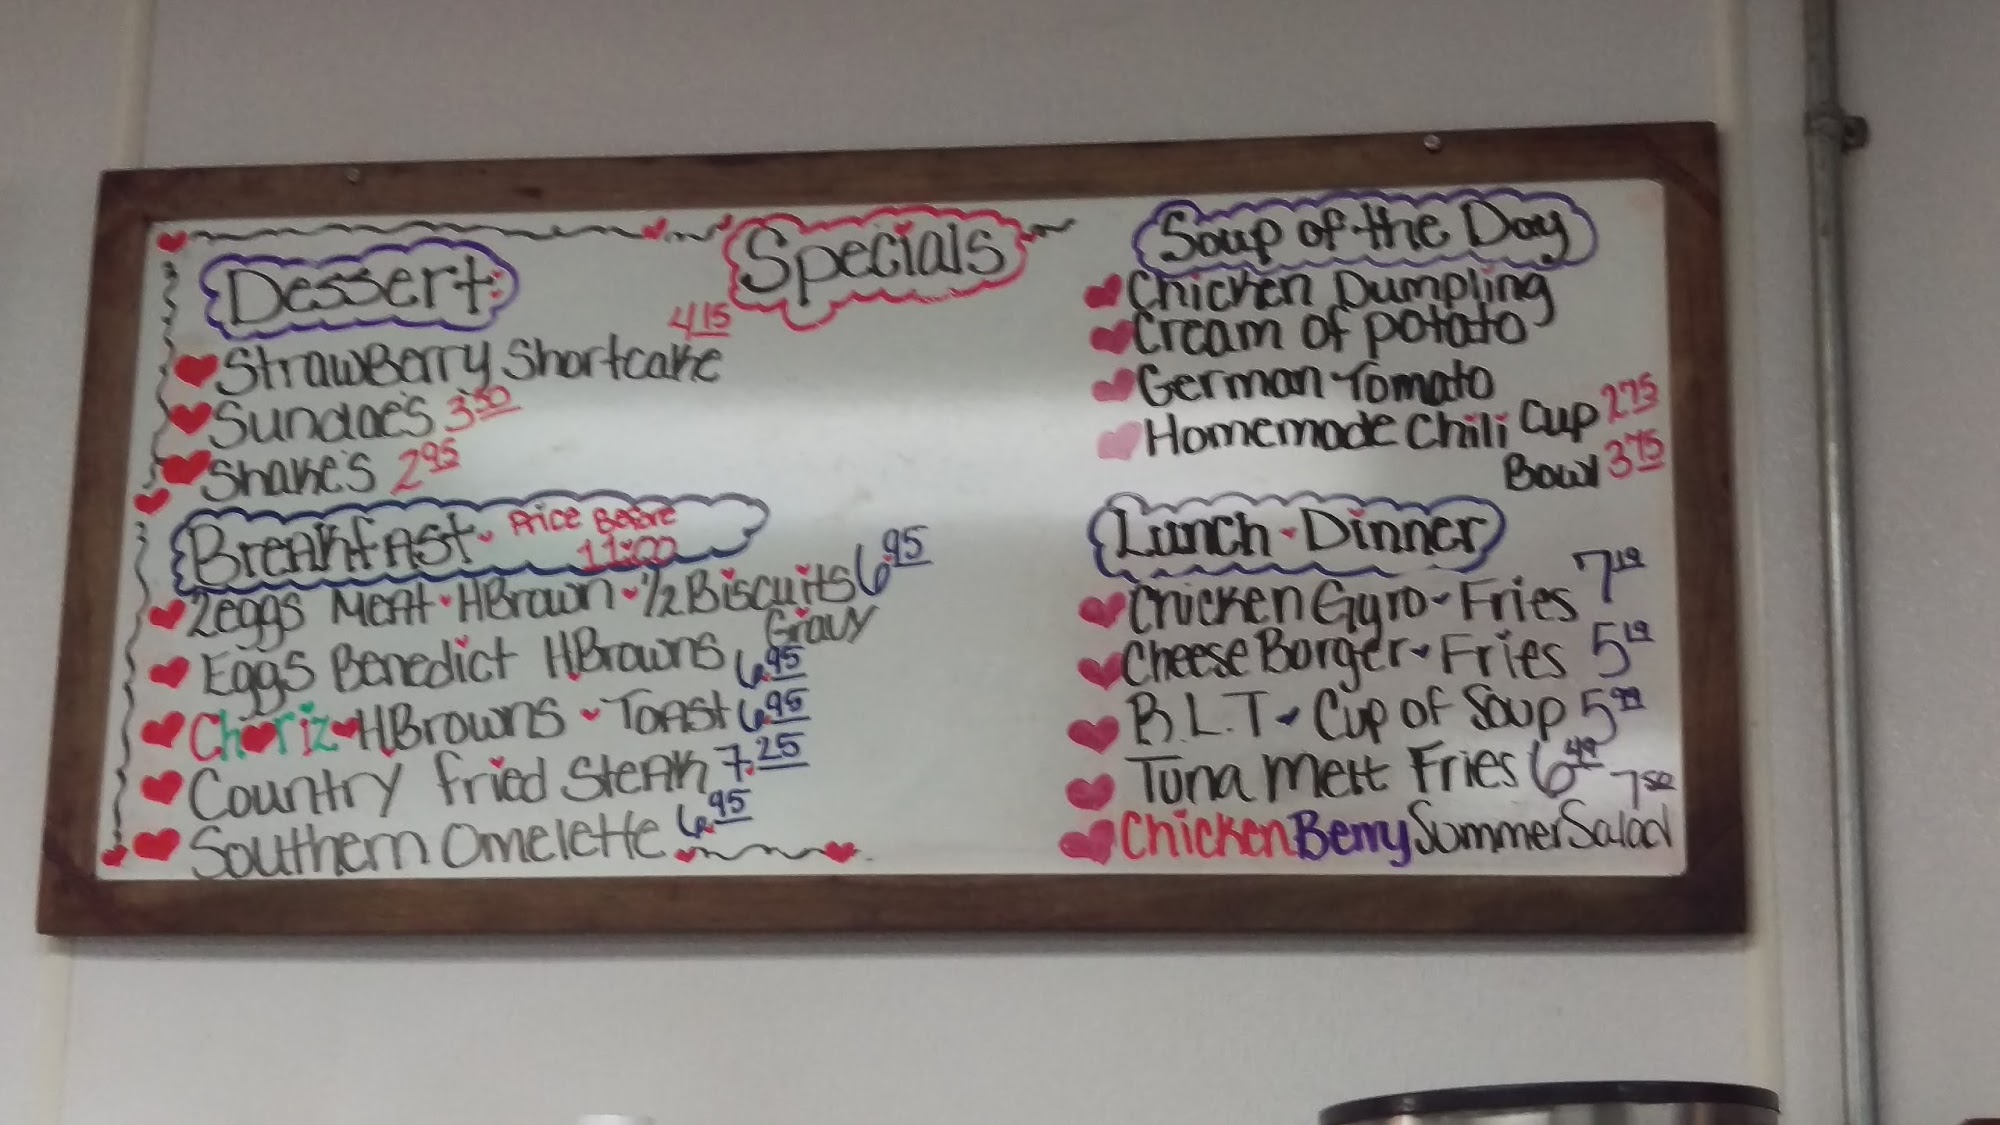 Specials
Dessert:
Strawberry Shortcake 4.15
Sundae's 3.50
Shake's 2.95
Breakfast Price Before
11:00
2 eggs Meat HBrown 1/2 Biscuits 6.95
Gravy
Eggs Benedict HBrowns 6.95
Choriz HBrowns Toast 6.95
Country Fried Steak 7.25
Southern Omelette 6.95
Soup of the Day
Chicken Dumpling
Cream of Potato
German Tomato
Homemade Chili Cup 2.75
Bowl 3.75
Lunch - Dinner
Chicken Gyro - Fries 7.19
Cheese Borger - Fries 5.19
B.L.T - Cup of Soup 5.99
Tuna Melt Fries 6.49
7.50
Chicken Berry Summer Salad